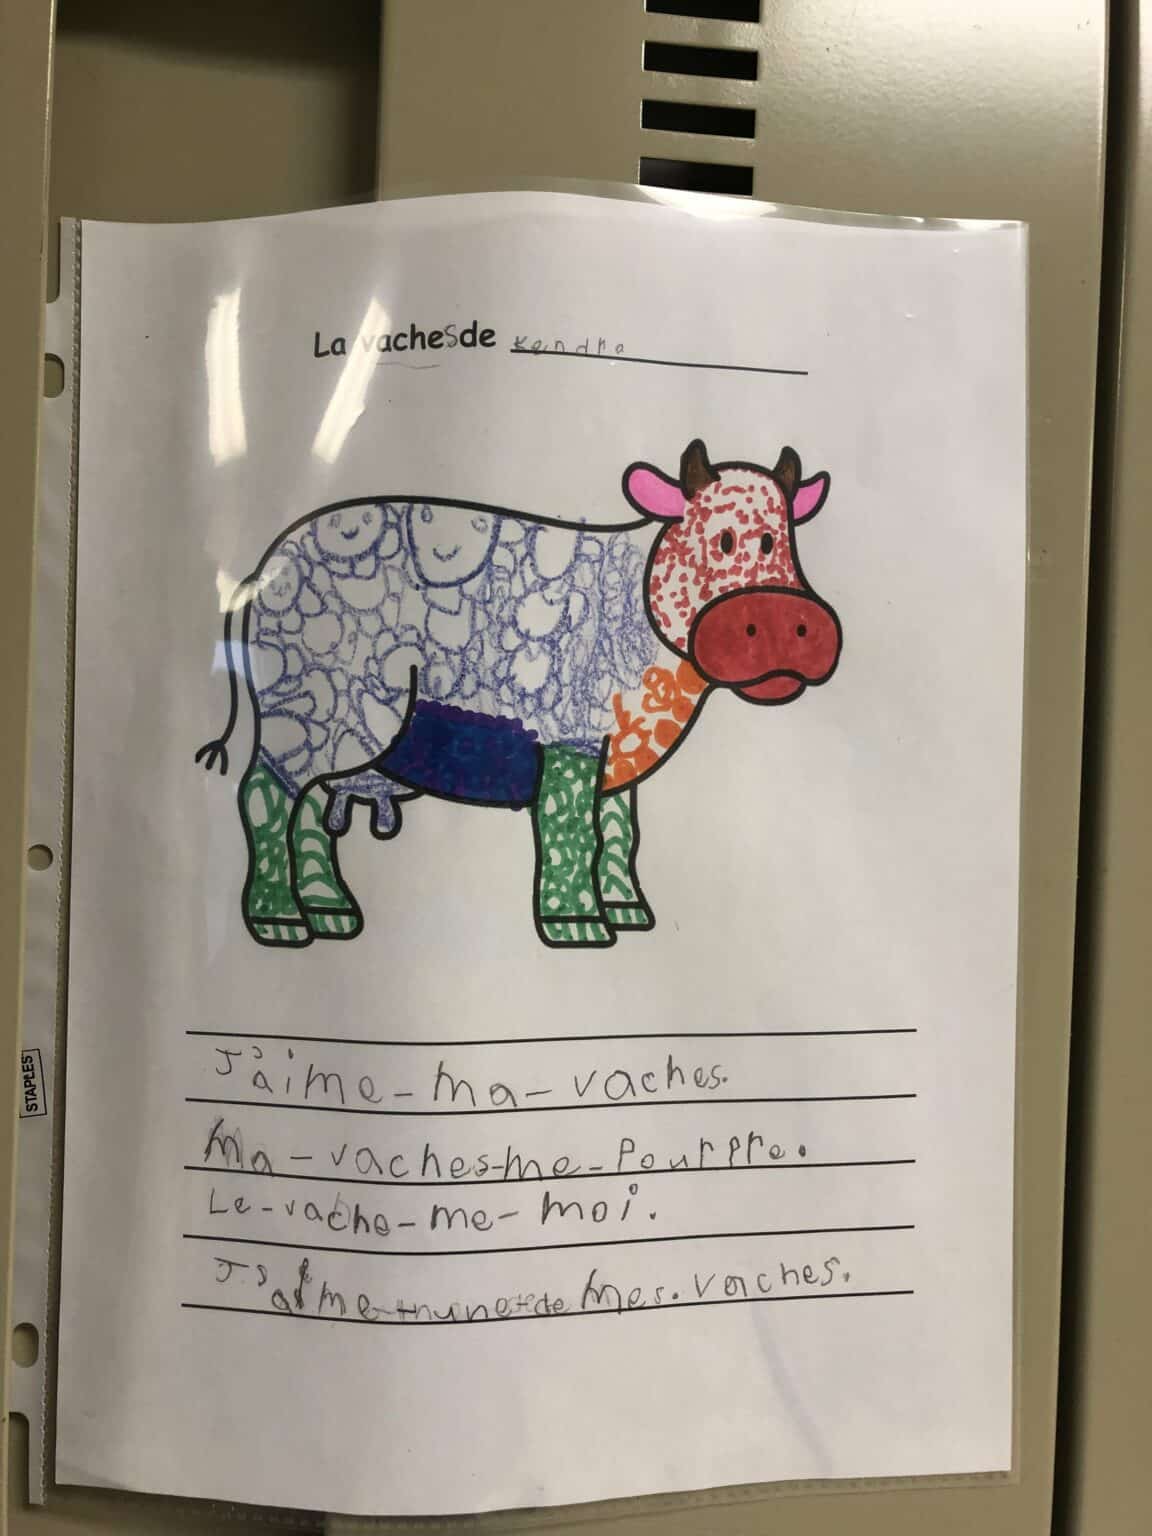 La vacheSde Kendra
J'aime-ma-vaches.
Ma-vaches-me-Pourpre.
Le-vache-me-moi.
J'aime mes.vaches.
STAPLES